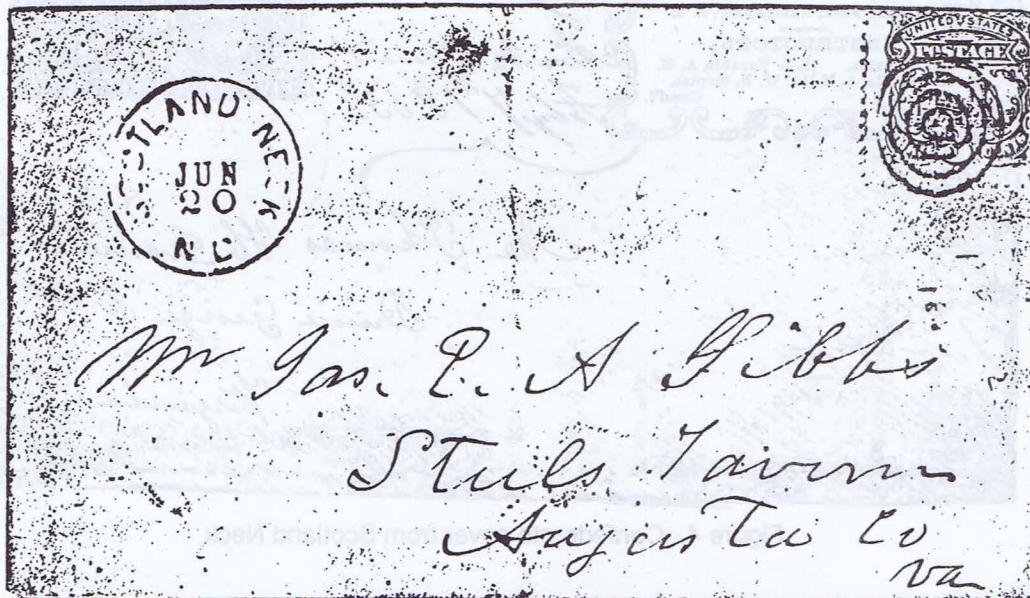 UNITED STATES
POSTAGE
SCOTLAND NECK
JUN
20
N C
Mr Jas. E. A Gibbs
Steels Tavern
Augusta Co
Va